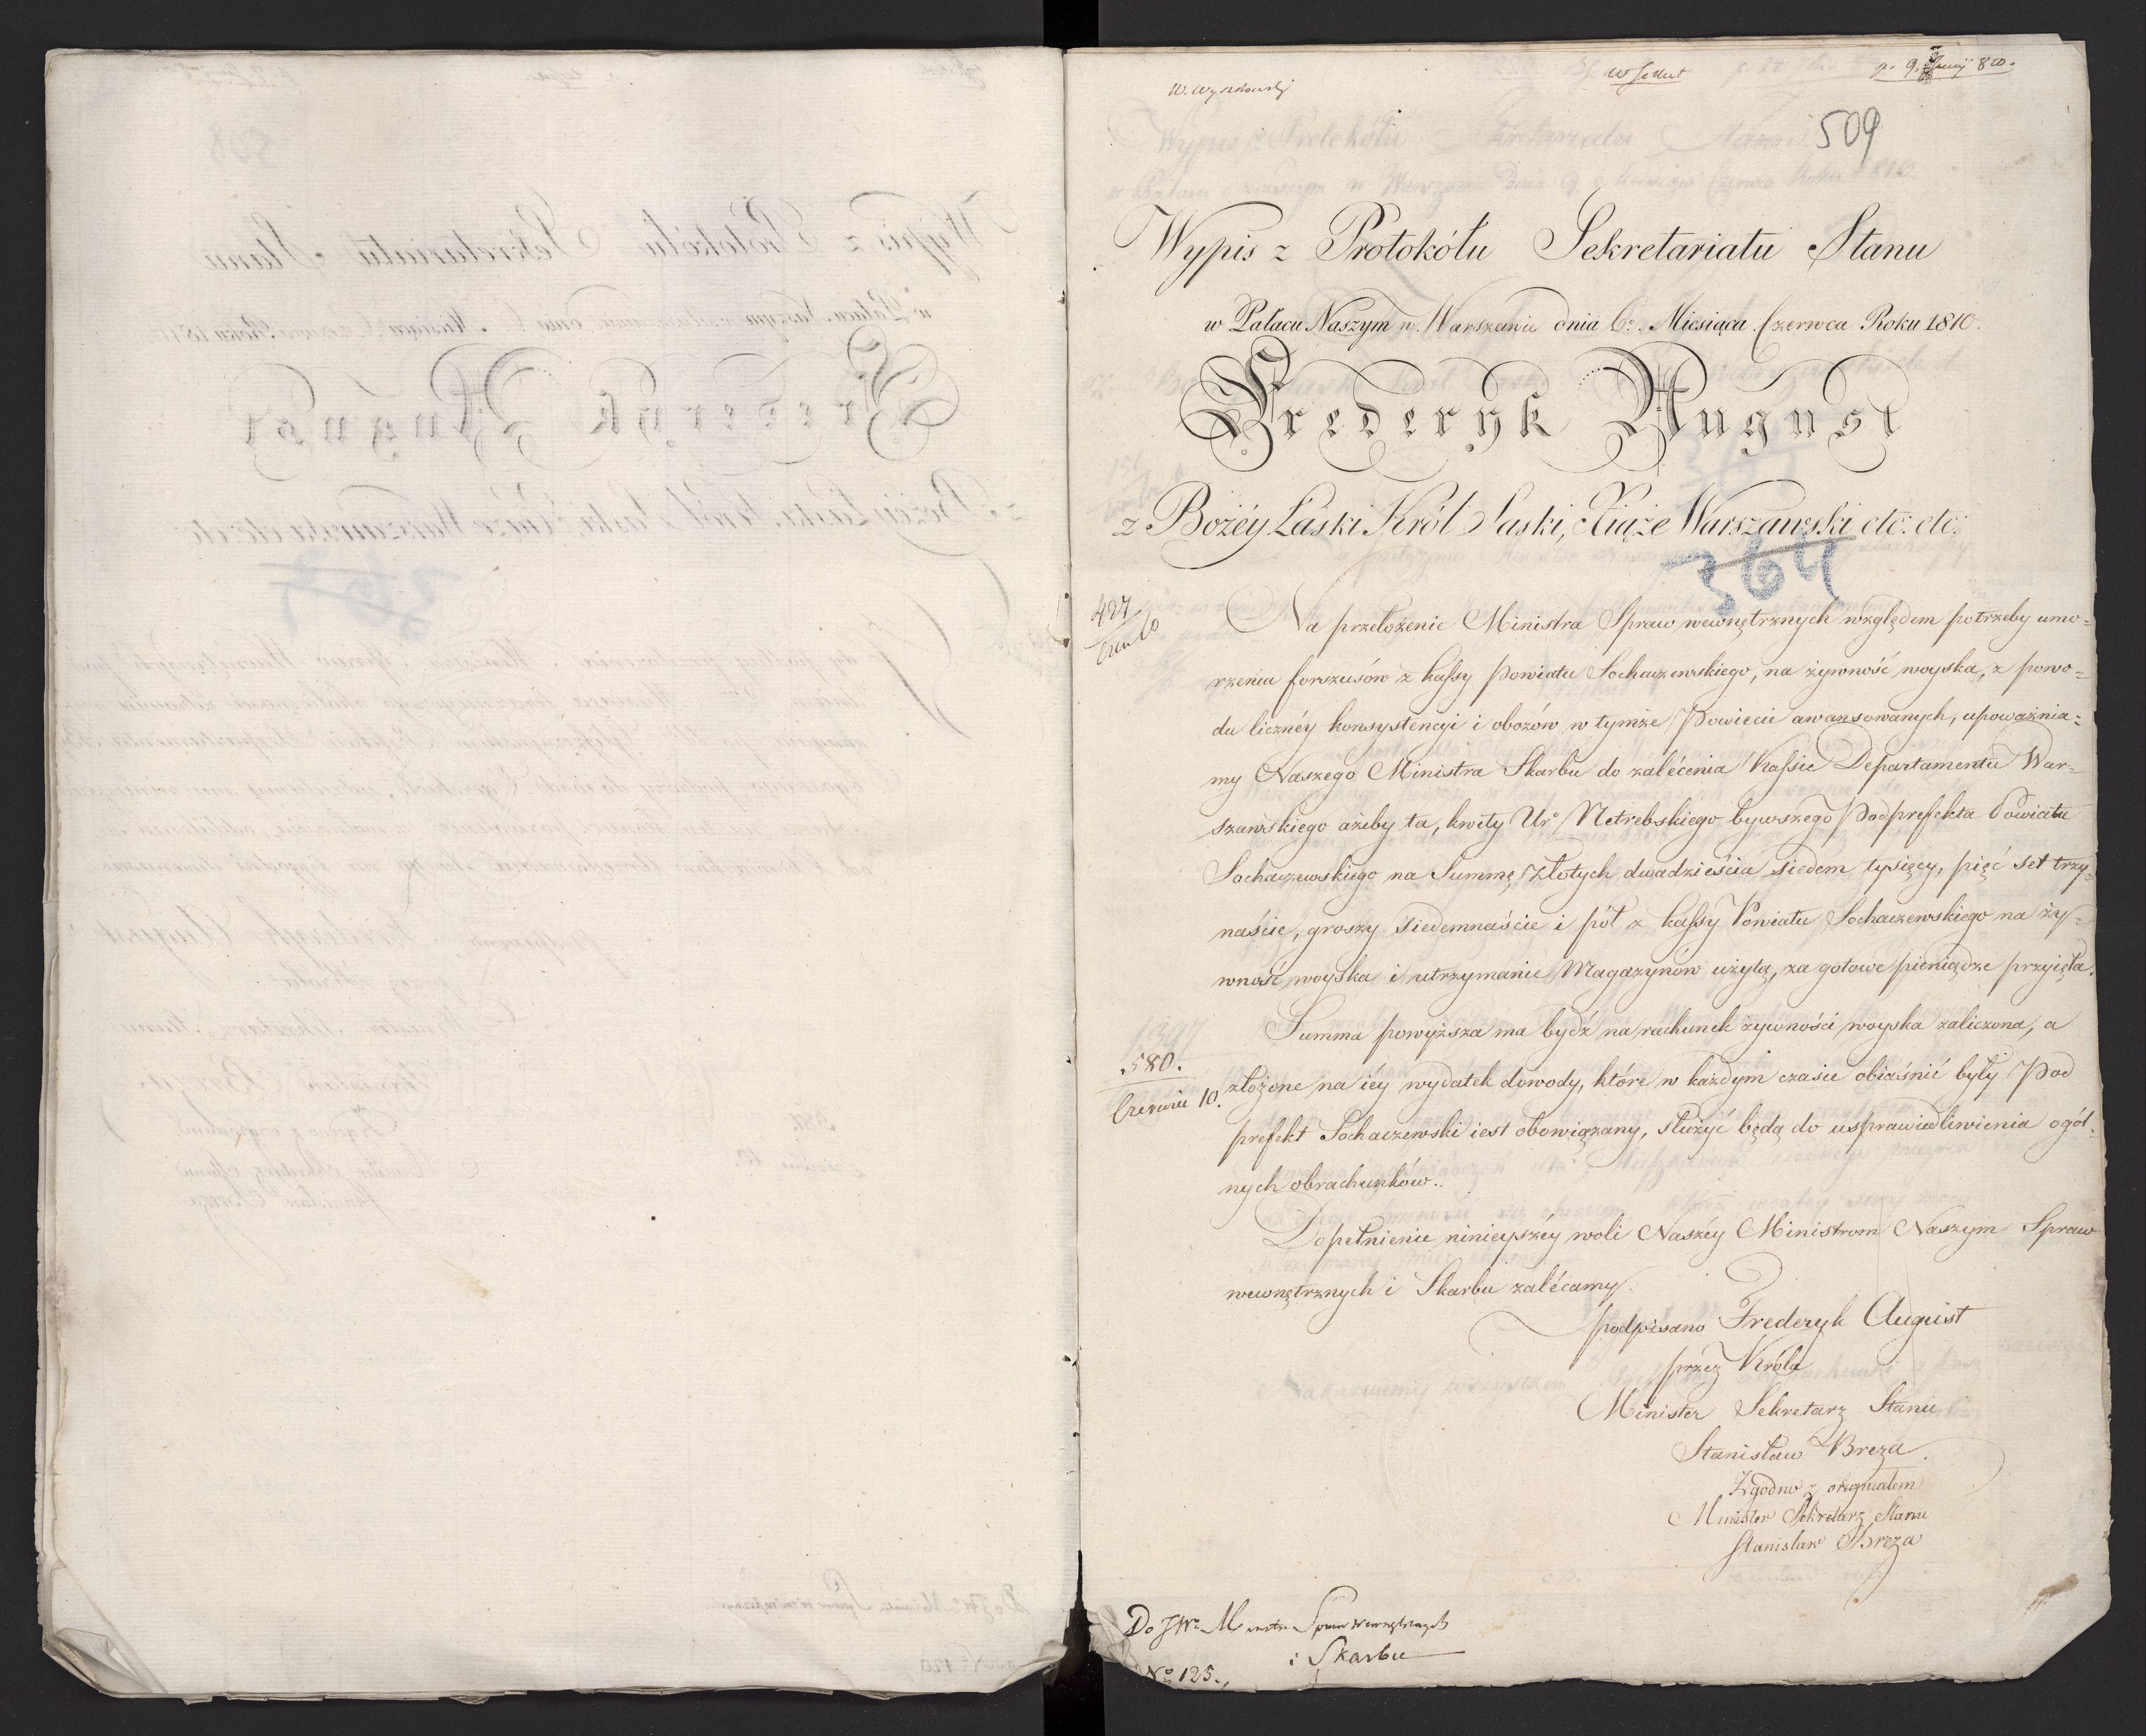 W. Wyszkowski
p. 9. Junij 810.
509
Wypis z Protokółu Sekretariatu Stanu
w Pałacu Naszym w Warszawie dnia 6º. Miesiąca Czerwca Roku 1810.
Frederyk August
z Bożéy Łaski Król Saski, Xiąże Warszawski etc: etc:
364
427
Na przełożenie Ministra Spraw wewnętrznych względem potrzeby umo-
rzenia forszusów z kassy Powiatu Sochaczewskiego, na żywność woyska, z powo-
du licznéy konsystencyi i obozów w tymże Powiecie awansowanych, upoważnia-
my Naszego Ministra Skarbu do zalécenia Kassie Departamentu War-
szawskiego ażeby ta, kwity Ur Netrebskiego bywszego Podprefekta Powiatu
Sochaczewskiego na Summę Złotych dwadzieścia siedem tysięcy, pięć set trzy-
naście, groszy siedemnaście i pół z kassy Powiatu Sochaczewskiego na ży-
wność woyska i utrzymanie Magazynów użytą, za gotowe pieniądze przyięła.
Summa powyższa ma bydź na rachunek żywności woyska zaliczona, a
.580.
Czerwca 10.
złożone na iéy wydatek dowody, które w każdym czasie obiaśnić były Pod
prefekt Sochaczewski iest obowiązany, służyć będą do usprawiedliwienia ogól-
nych obrachunków.
Dopełnienie ninieyszéy woli Naszéy Ministrom Naszym Spraw
wewnętrznych i Skarbu zalécamy.
podpisano Frederyk August
przez Króla
Minister Sekretarz Stanu
Stanisław Breza.
Zgodno z originałem
Minister Sekretarz Stanu
Stanisław Breza
Do JW. Ministra Spraw Wewnętrznych
i Skarbu
Nº 125.